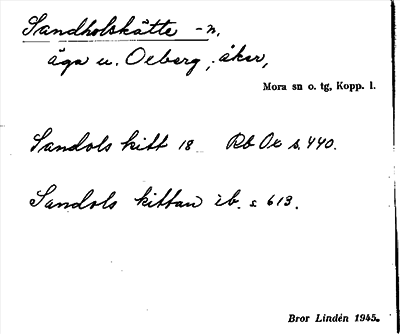 Sandholskätte -n,
äga u. Oeberg, åker,
Mora sn o. tg, Kopp. l.
Sandols kitt 18 Rb Oe s. 440.
Sandols kittan ib. s 613.
Bror Lindén 1945.